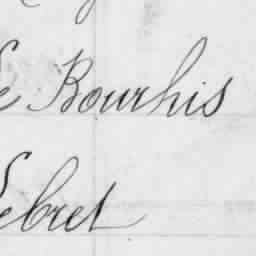 Le Bourhis
Lebret